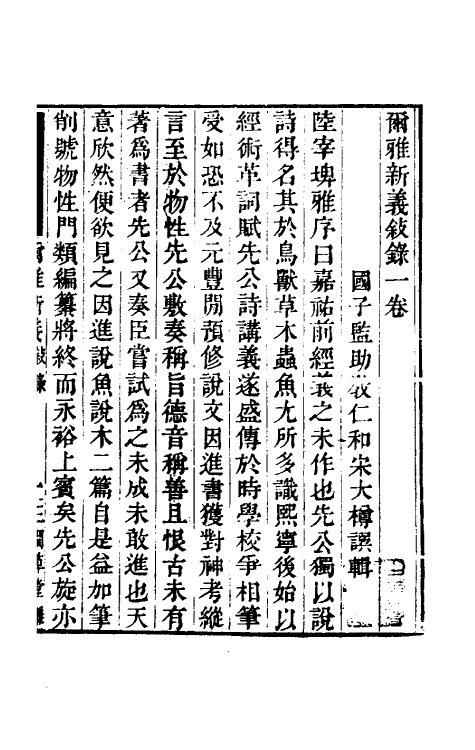 爾雅新義敍錄一卷
國子監助敎仁和宋大樽譔輯
陸宰埤雅序曰嘉祐前經義之未作也先公獨以說
詩得名其於鳥獸草木蟲魚尤所多識熙寧後始以
經術革詞賦先公詩講義遂盛傳於時學校爭相筆
受如恐不及元豐閒預修說文因進書獲對神考縱
言至於物性先公敷奏稱旨德音稱善且恨古未有
著爲書者先公又奏臣嘗試爲之未成未敢進也天
意欣然便欲見之因進說魚說木二篇自是益加筆
削號物性門類編纂將終而永裕上賓矣先公旋亦
爾雅新義敍錄